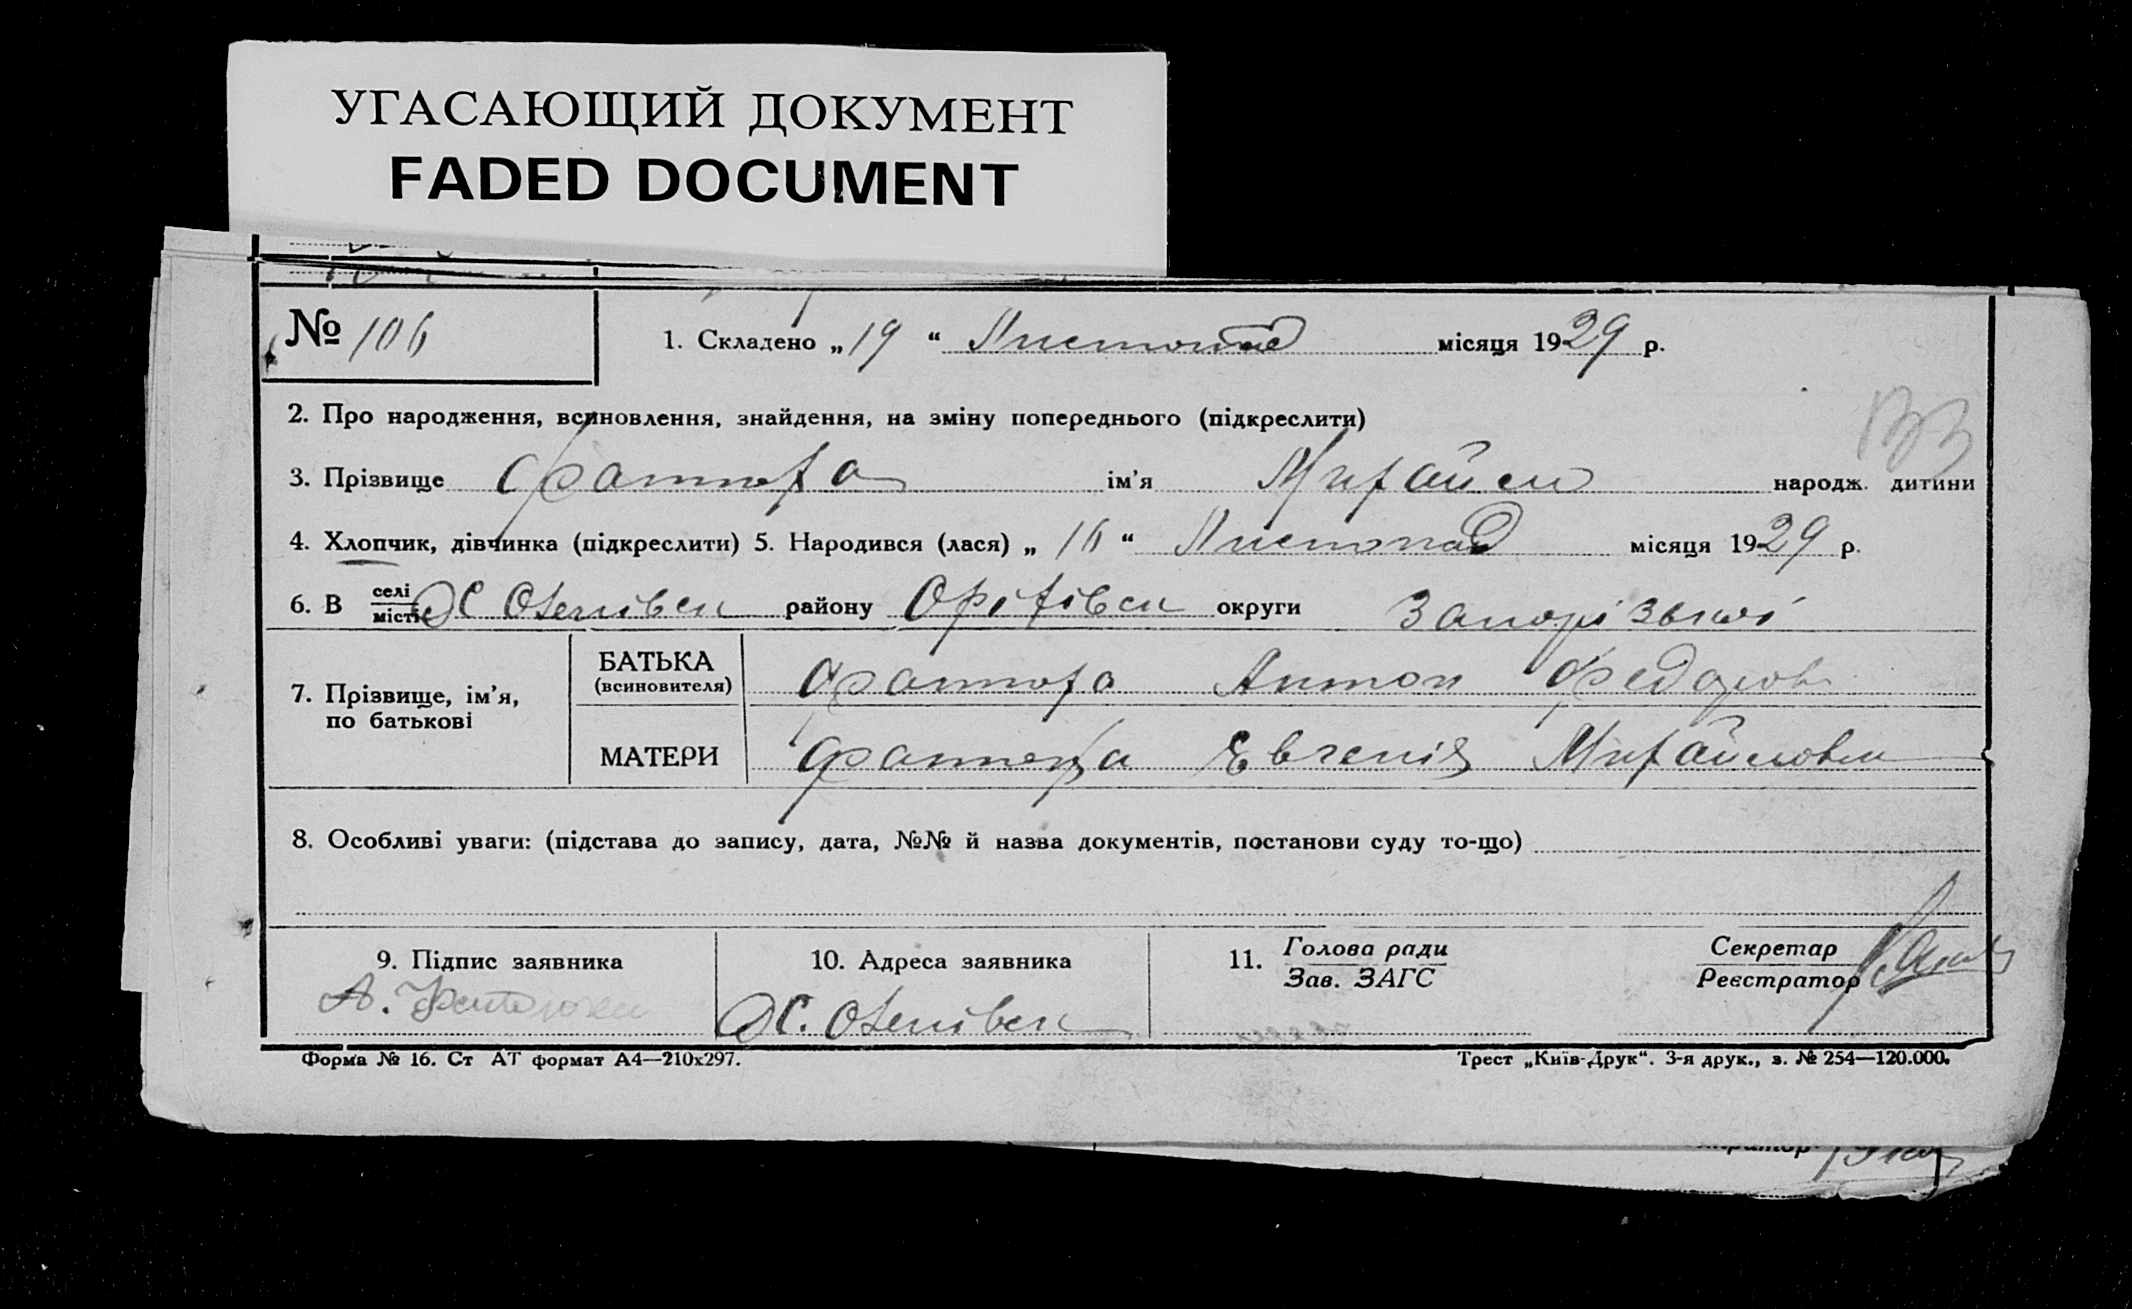 УГАСАЮЩИЙ ДОКУМЕНТ
FADED DOCUMENT
№ 106
1. Складено „19“ Листопад місяця 1929 р.
2. Про народження, всиновлення, знайдення, на зміну попереднього (підкреслити)
3. Прізвище ім’я Михайло народж. дитини
4. Хлопчик, дівчинка (підкреслити) 5. Народився (лася) „16“ Листопад місяця 1929 р.
6. В селі місті району Оріхівськ округи Запорізької
7. Прізвище, ім’я, по батькові
БАТЬКА (всиновителя) Антон Федоров
МАТЕРИ Євгенія Михайловна
8. Особливі уваги: (підстава до запису, дата, №№ й назва документів, постанови суду то-що)
9. Підпис заявника
10. Адреса заявника
11. Голова ради Зав. ЗАГС
Секретар Реєстратор
Форма № 16. Ст АТ формат А4—210х297.
Трест „Київ-Друк“. 3-я друк., з. № 254—120.000.